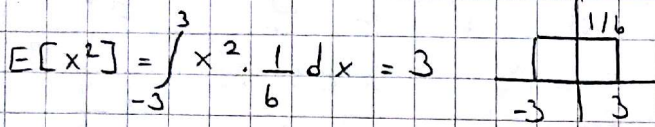 E[x²] = ∫₋₃³ x² · 1/6 dx = 3
1/6
-3 3